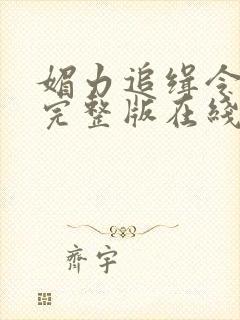 媚力追缉令
完整版在綫
齊宇